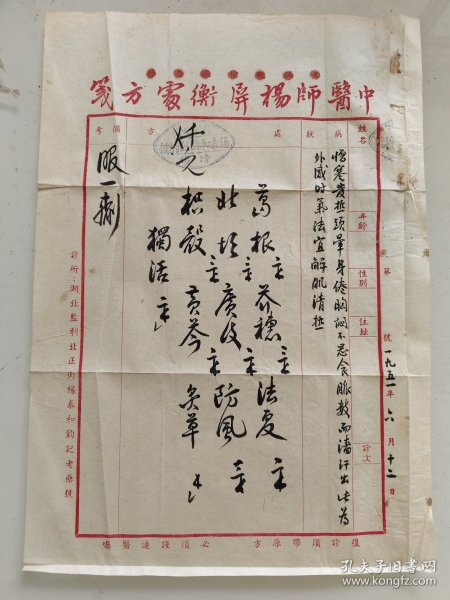 中醫師楊屏衡處方箋
姓名
年齡
性別
住址
診次
第
號
一九五一年六月十二日
病狀
憎寒發热頭暈身倦胸悶不思食脈数而
汗出此為
外感时氣法宜解肌清热
處方
葛根
芥穗
法夏
北
廣皮
防風
枳殼
黄芩
炙草
獨活
備考
服一劑
診所：湖北監利北正街楊泰和鈞記老藥號
復診須帶原方
必須謹遵醫囑
孔夫子旧书网
www.kongfz.com